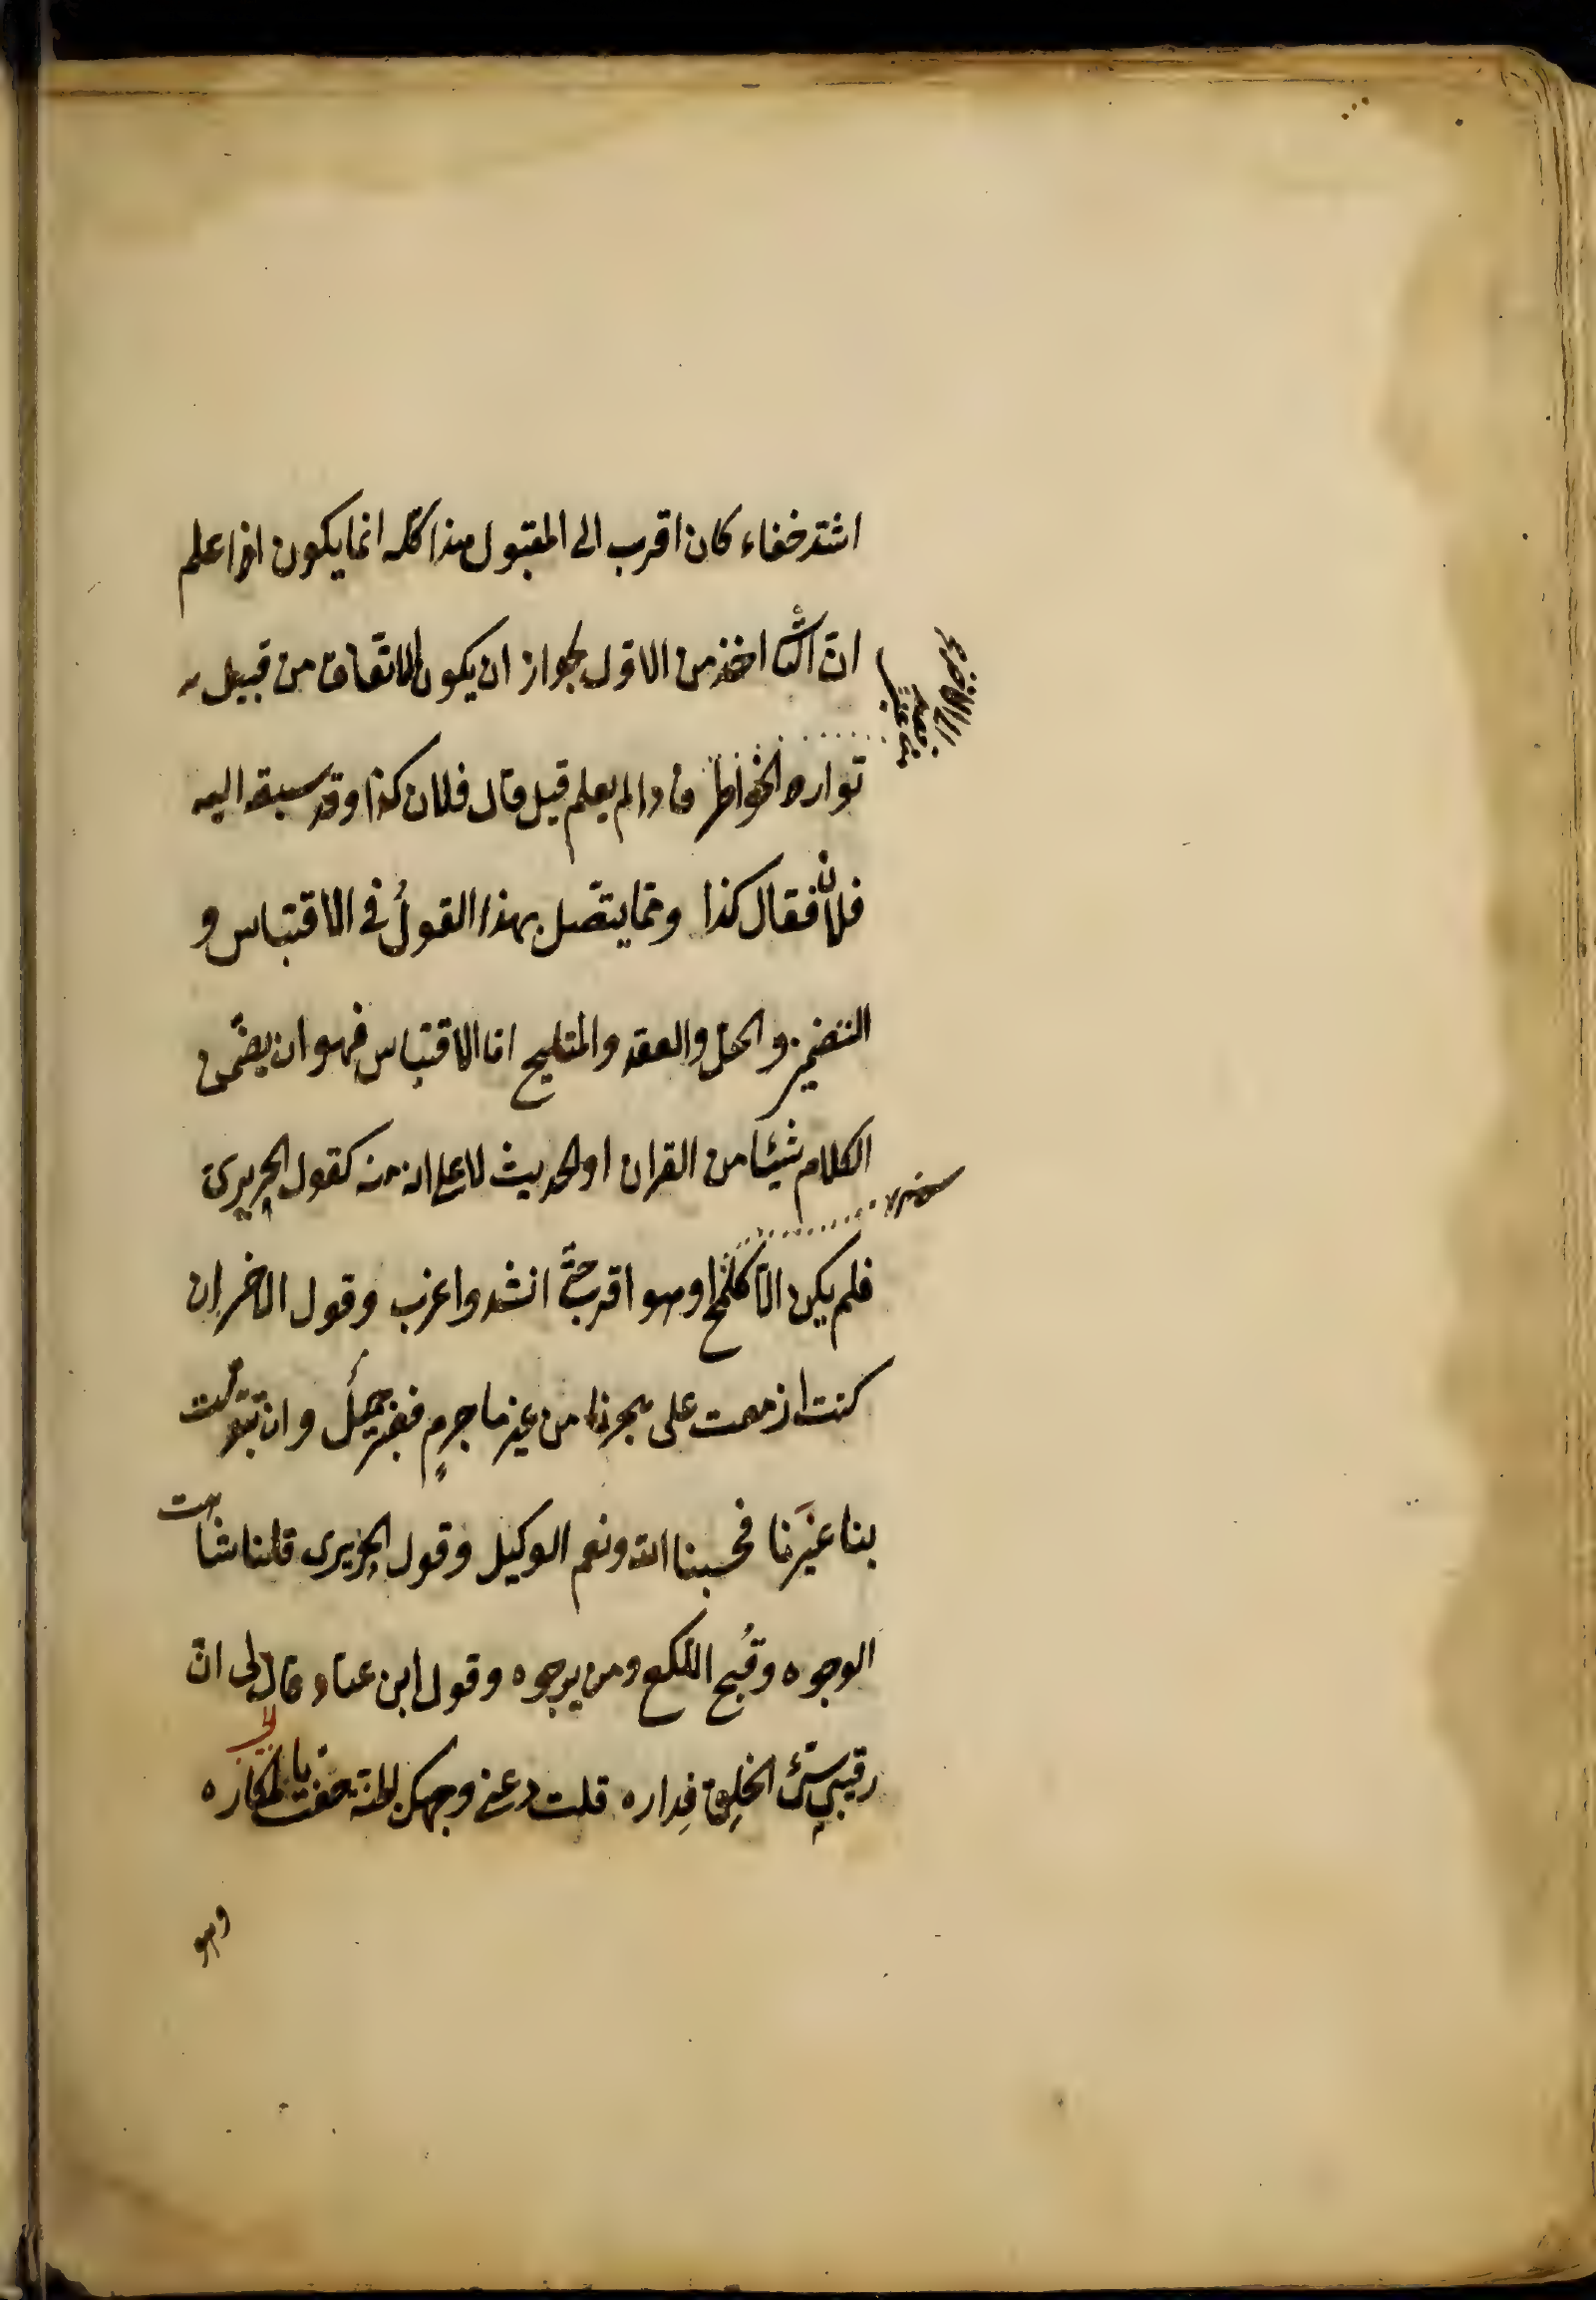 اشد خفاء كان اقرب الى المقبول هذا كله انما يكون اذا علم
ان الثانى اخذ من الاول لجواز ان يكون الاتفاق من قبيل
توارد الخواطر فاذا لم يعلم قيل قال فلان كذا وقد سبقه اليه
فلان فقال كذا ومما يتصل بهذا القولُ فى الاقتباس و
التضمين والحل والعقد والتلميح اما الاقتباس فهو ان يضمّن
الكلام شيئا من القران او الحديث لا على انه منه كقول الحريرى
فلم يكن الا كلمح او هو اقرب حتى انشد واغرب وقول الاخر ان
كنت ازمعت على هجرنا من غير ما جرمٍ فصبر جميلُ وان تبدّلت
بنا غيرَنا فحسبنا الله ونعم الوكيل وقول الحريرى قلنا شاهت
الوجوه وقُبح اللكع ومن يرجوه وقول ابن عباد قال لى انّ
رقيبى سيّئ الخلق فداره قلت دعنى وجهك الجنة حفت بالمكاره
وهو